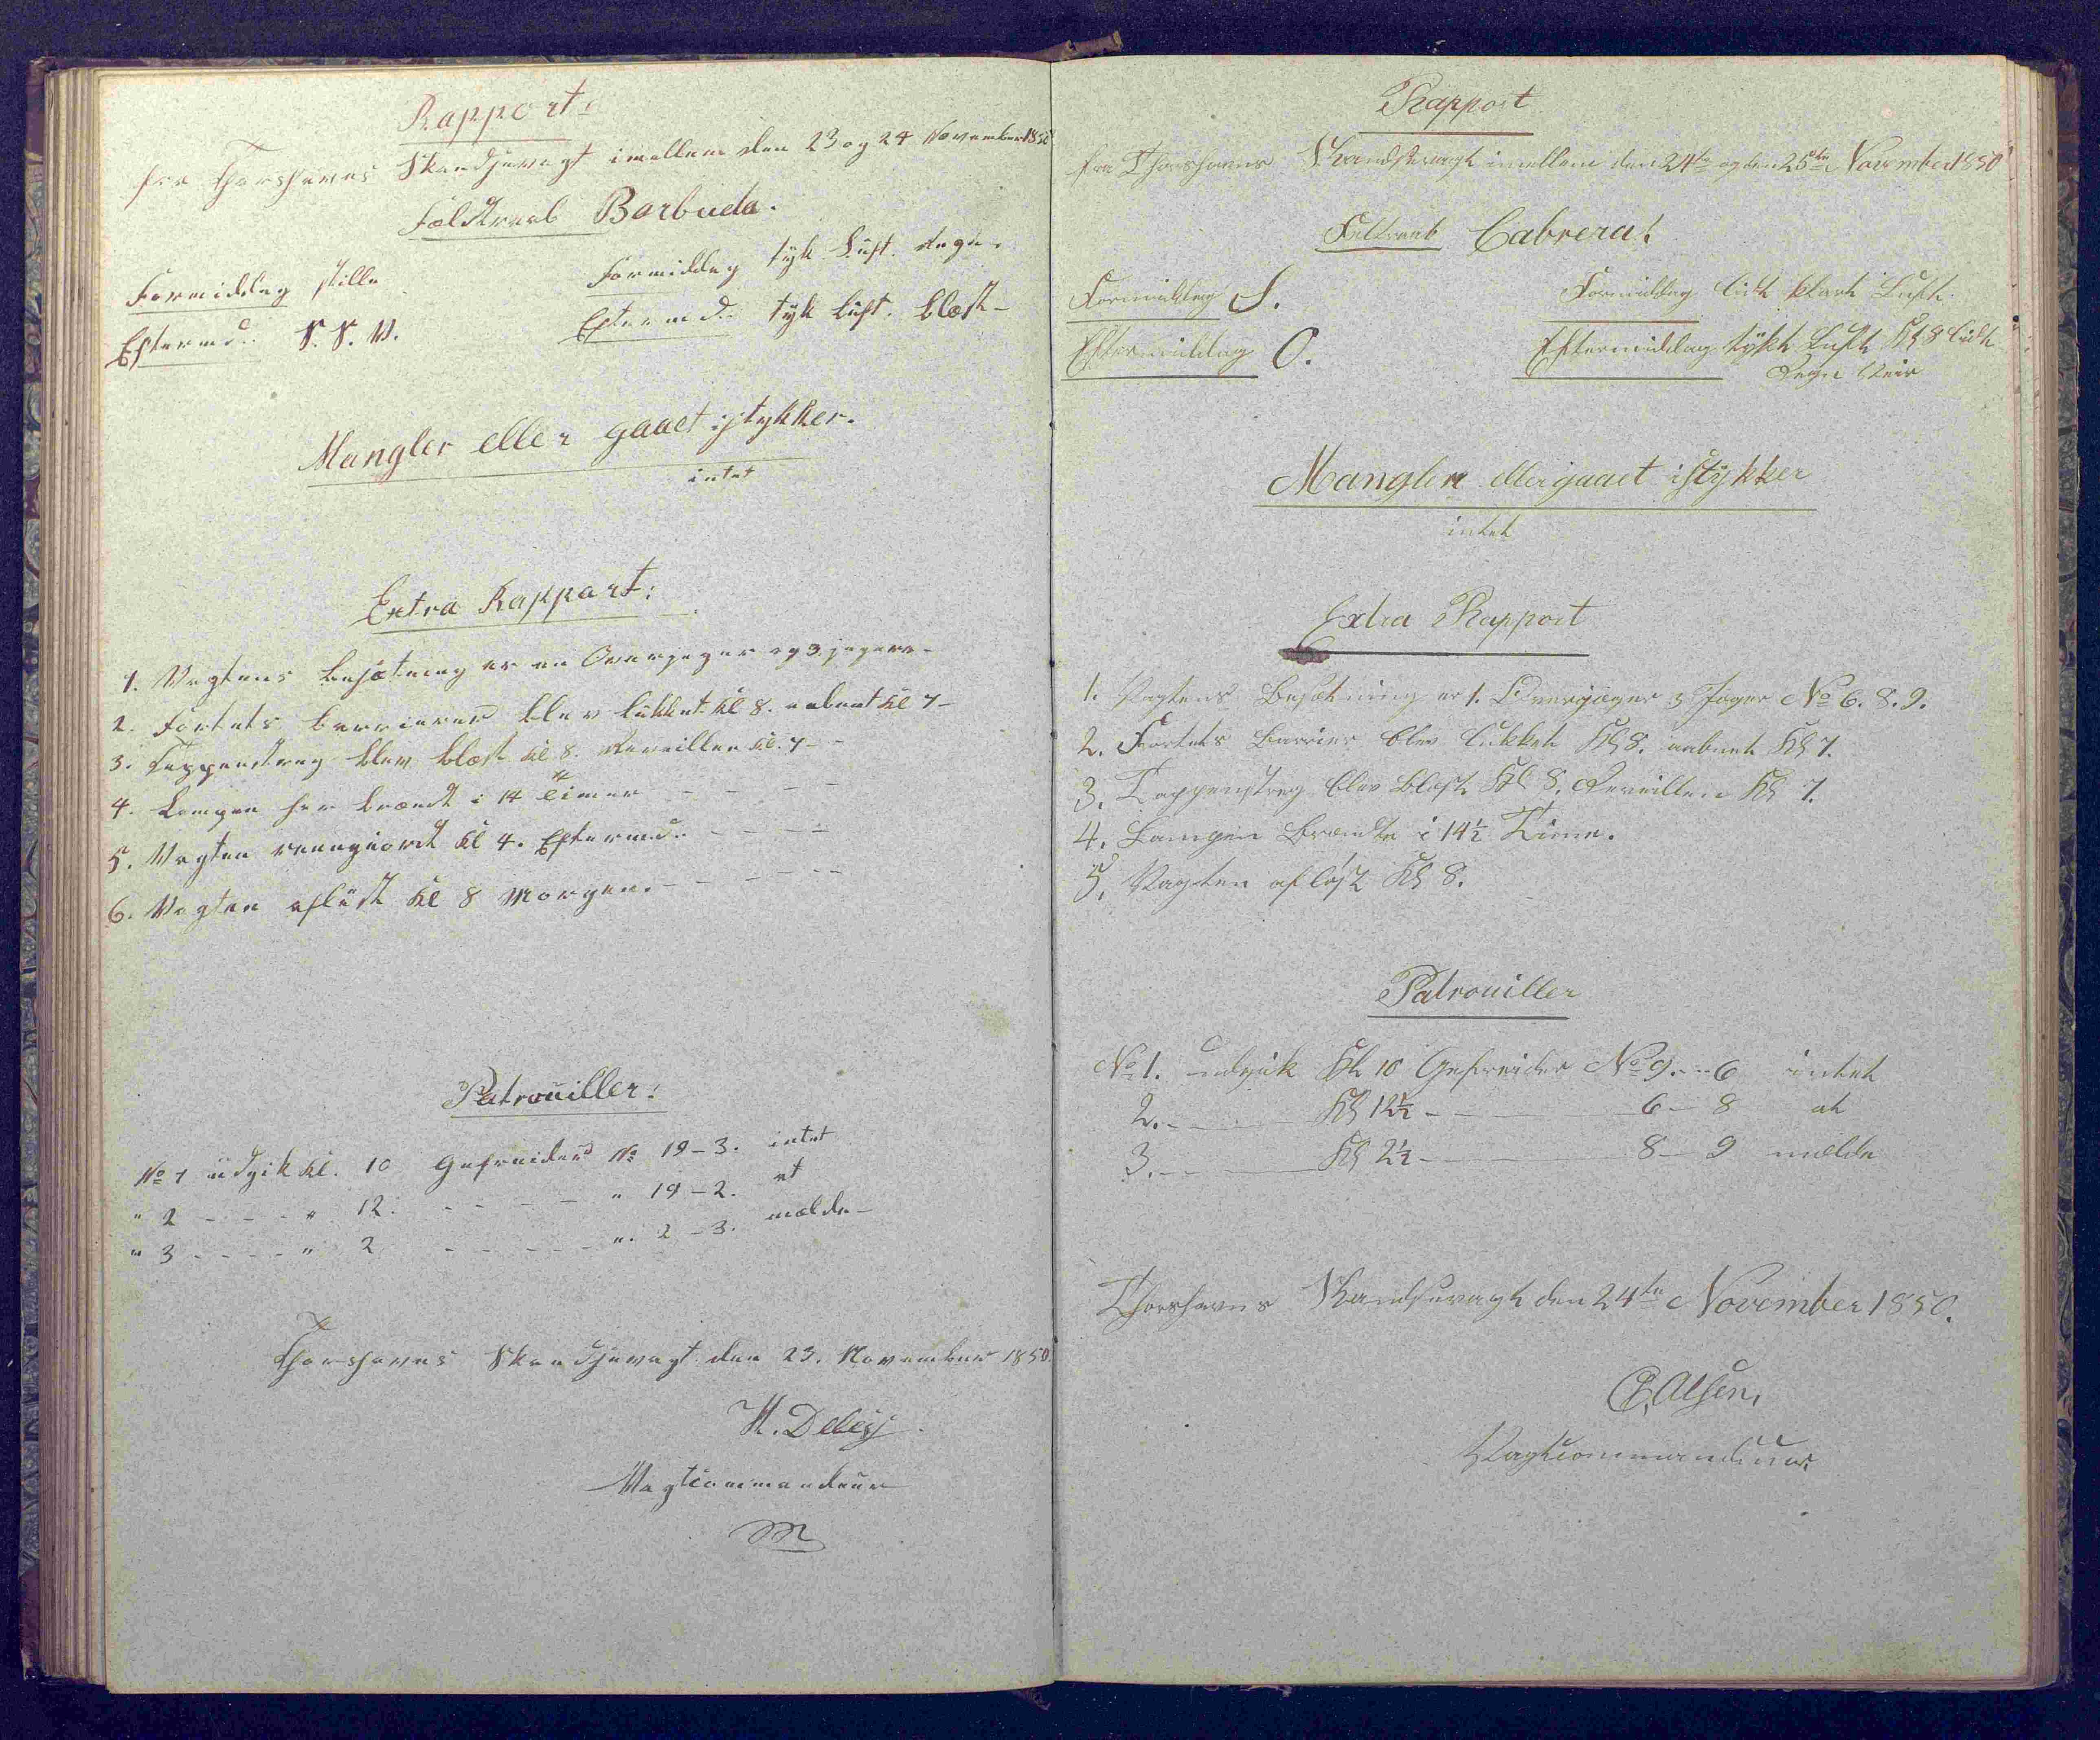 Rapport:
fra Thorshavns Skandsevagt imellem den 23 og 24 November 1850
Feldtraab Barbuda.
Formiddag stille
Formiddag tyk Luft. Regn.
Eftermd: S. S. V.
Eftermd: tyk Luft. Blæst -
Mangler eller gaaet istykker.
intet
Extra Rapport:
1. Vagtens besætning er en Overjæger og 3 jægere -
2. Fortets barrierer blev lukket Kl 8. aabnet Kl 7 -
3. Tappenstreg blev blæst Kl 8. Reveillen Kl. 7 - -
4. Lampen har brændt i 14 Timer - - - -
5. Vagten reengjordt Kl 4. Eftermd. - - - -
6. Vagten afløst Kl 8 Morgen. - - - - -
Patrouiller:
No 1 udgik Kl. 10 Gefreider No 19 - 3. intet
" 2 - - - " 12. - - - - " 19 - 2. at
" 3 - - - - " 2 - - - - - ". 2 - 3. melde -
Thorshavns Skandsevagt den 23. November 1850.
H. Debes
Vagtcommandeur
Rapport
fra Thorshavns Skandsevagt imellem den 24de og den 25de November 1850
Feltraab Cabrera!
Formiddag S.
Formiddag lidt klart Luft.
Eftermiddag O.
Eftermiddag tykt Luft Kl 8 lidt
Regn Veir
Mangler eller gaaet istykker
intet
Extra Rapport
1. Vagtens Besætning er 1. Overjæger 3 Jæger No 6. 8. 9.
2. Fortets Barrier blev lukket Kl 8. aabnet Kl 7.
3. Tappenstreg blev blæst Kl 8. Reveillen Kl 7.
4. Lampen Brændte i 14½ Time.
5. Vagten afløst Kl 8.
Patrouiller
No 1. udgik Kl 10 Gefreider No 9. - - 6 intet
2. - Kl 12½ - 6 - 8 at
3. - Kl 2½ - 8 - 9 melde
Thorshavns Skandsevagt den 24de November 1850.
Olsen,
Vagtcommandeur.